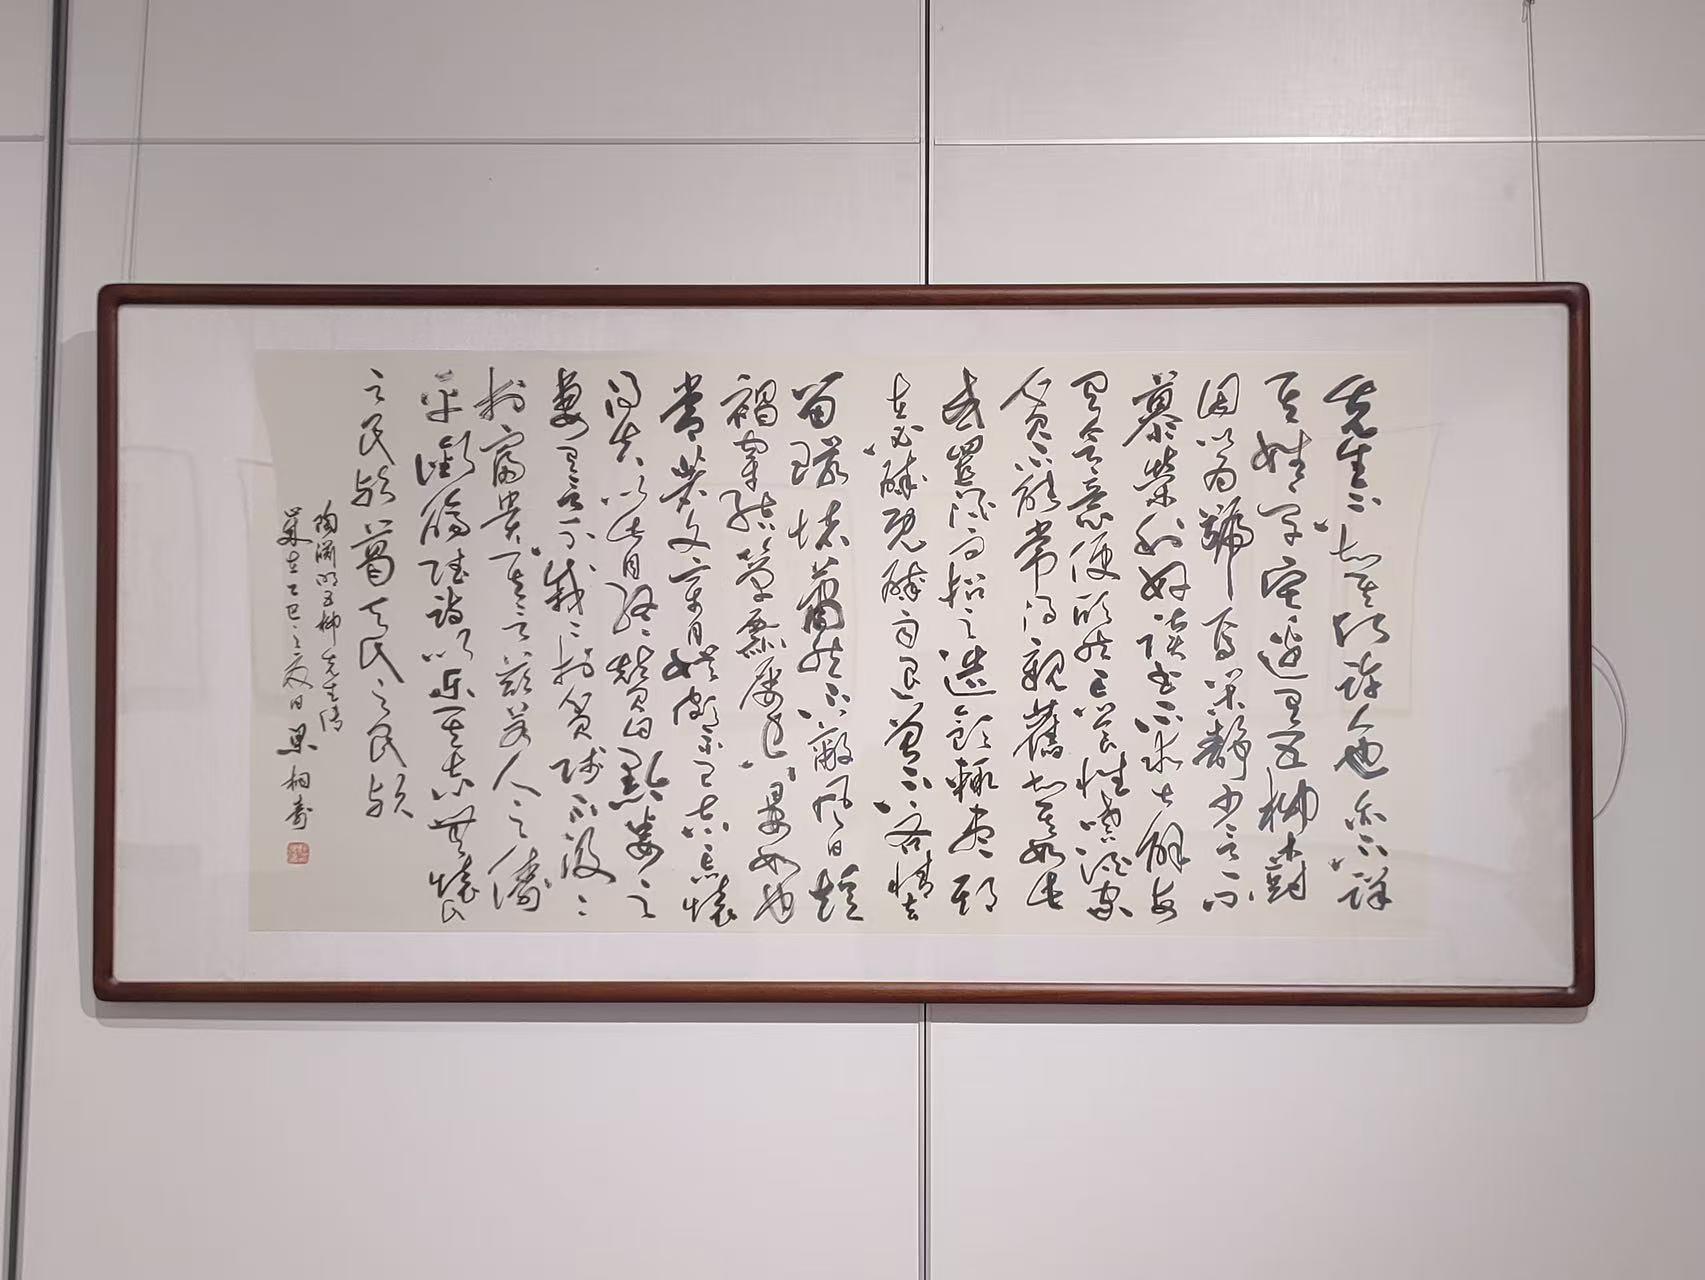 先生不知何許人也亦不詳
其姓字宅邊有五柳樹
因以為號焉閑靜少言不
慕榮利好讀書不求甚解每
有會意便欣然忘食性嗜酒家
貧不能常得親舊知其如此
或置酒而招之造飲輒盡期
在必醉既醉而退曾不吝情去
留環堵蕭然不蔽風日短
褐穿結簞瓢屢空晏如也
常著文章自娛頗示己志忘懷
得失以此自終贊曰黔婁之
妻有言不戚〻於貧賤不汲〻
於富貴其言茲若人之儔
乎銜觴賦詩以樂其志無懷氏
之民歟葛天氏之民歟
陶淵明五柳先生傳
歲在乙巳之夏日